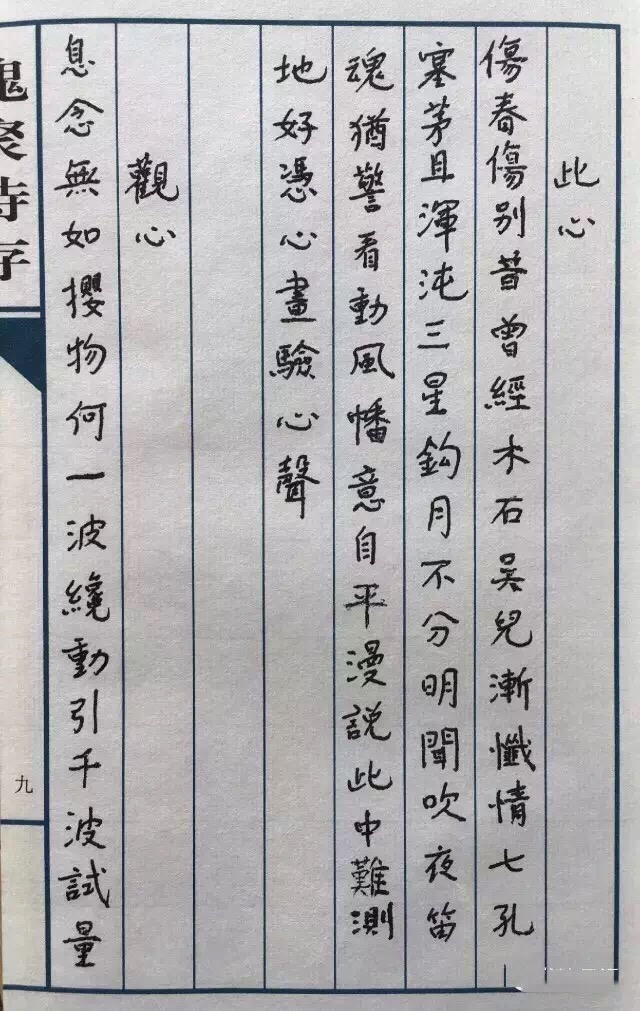 此心
傷春傷別昔曾經木石吳兒漸懺情七孔
塞茅且渾沌三星鈎月不分明聞吹夜笛
魂猶警看動風幡意自平漫説此中難測
地好憑心畫驗心聲
觀心
息念無如攖物何一波纔動引千波試量
槐聚詩存
九